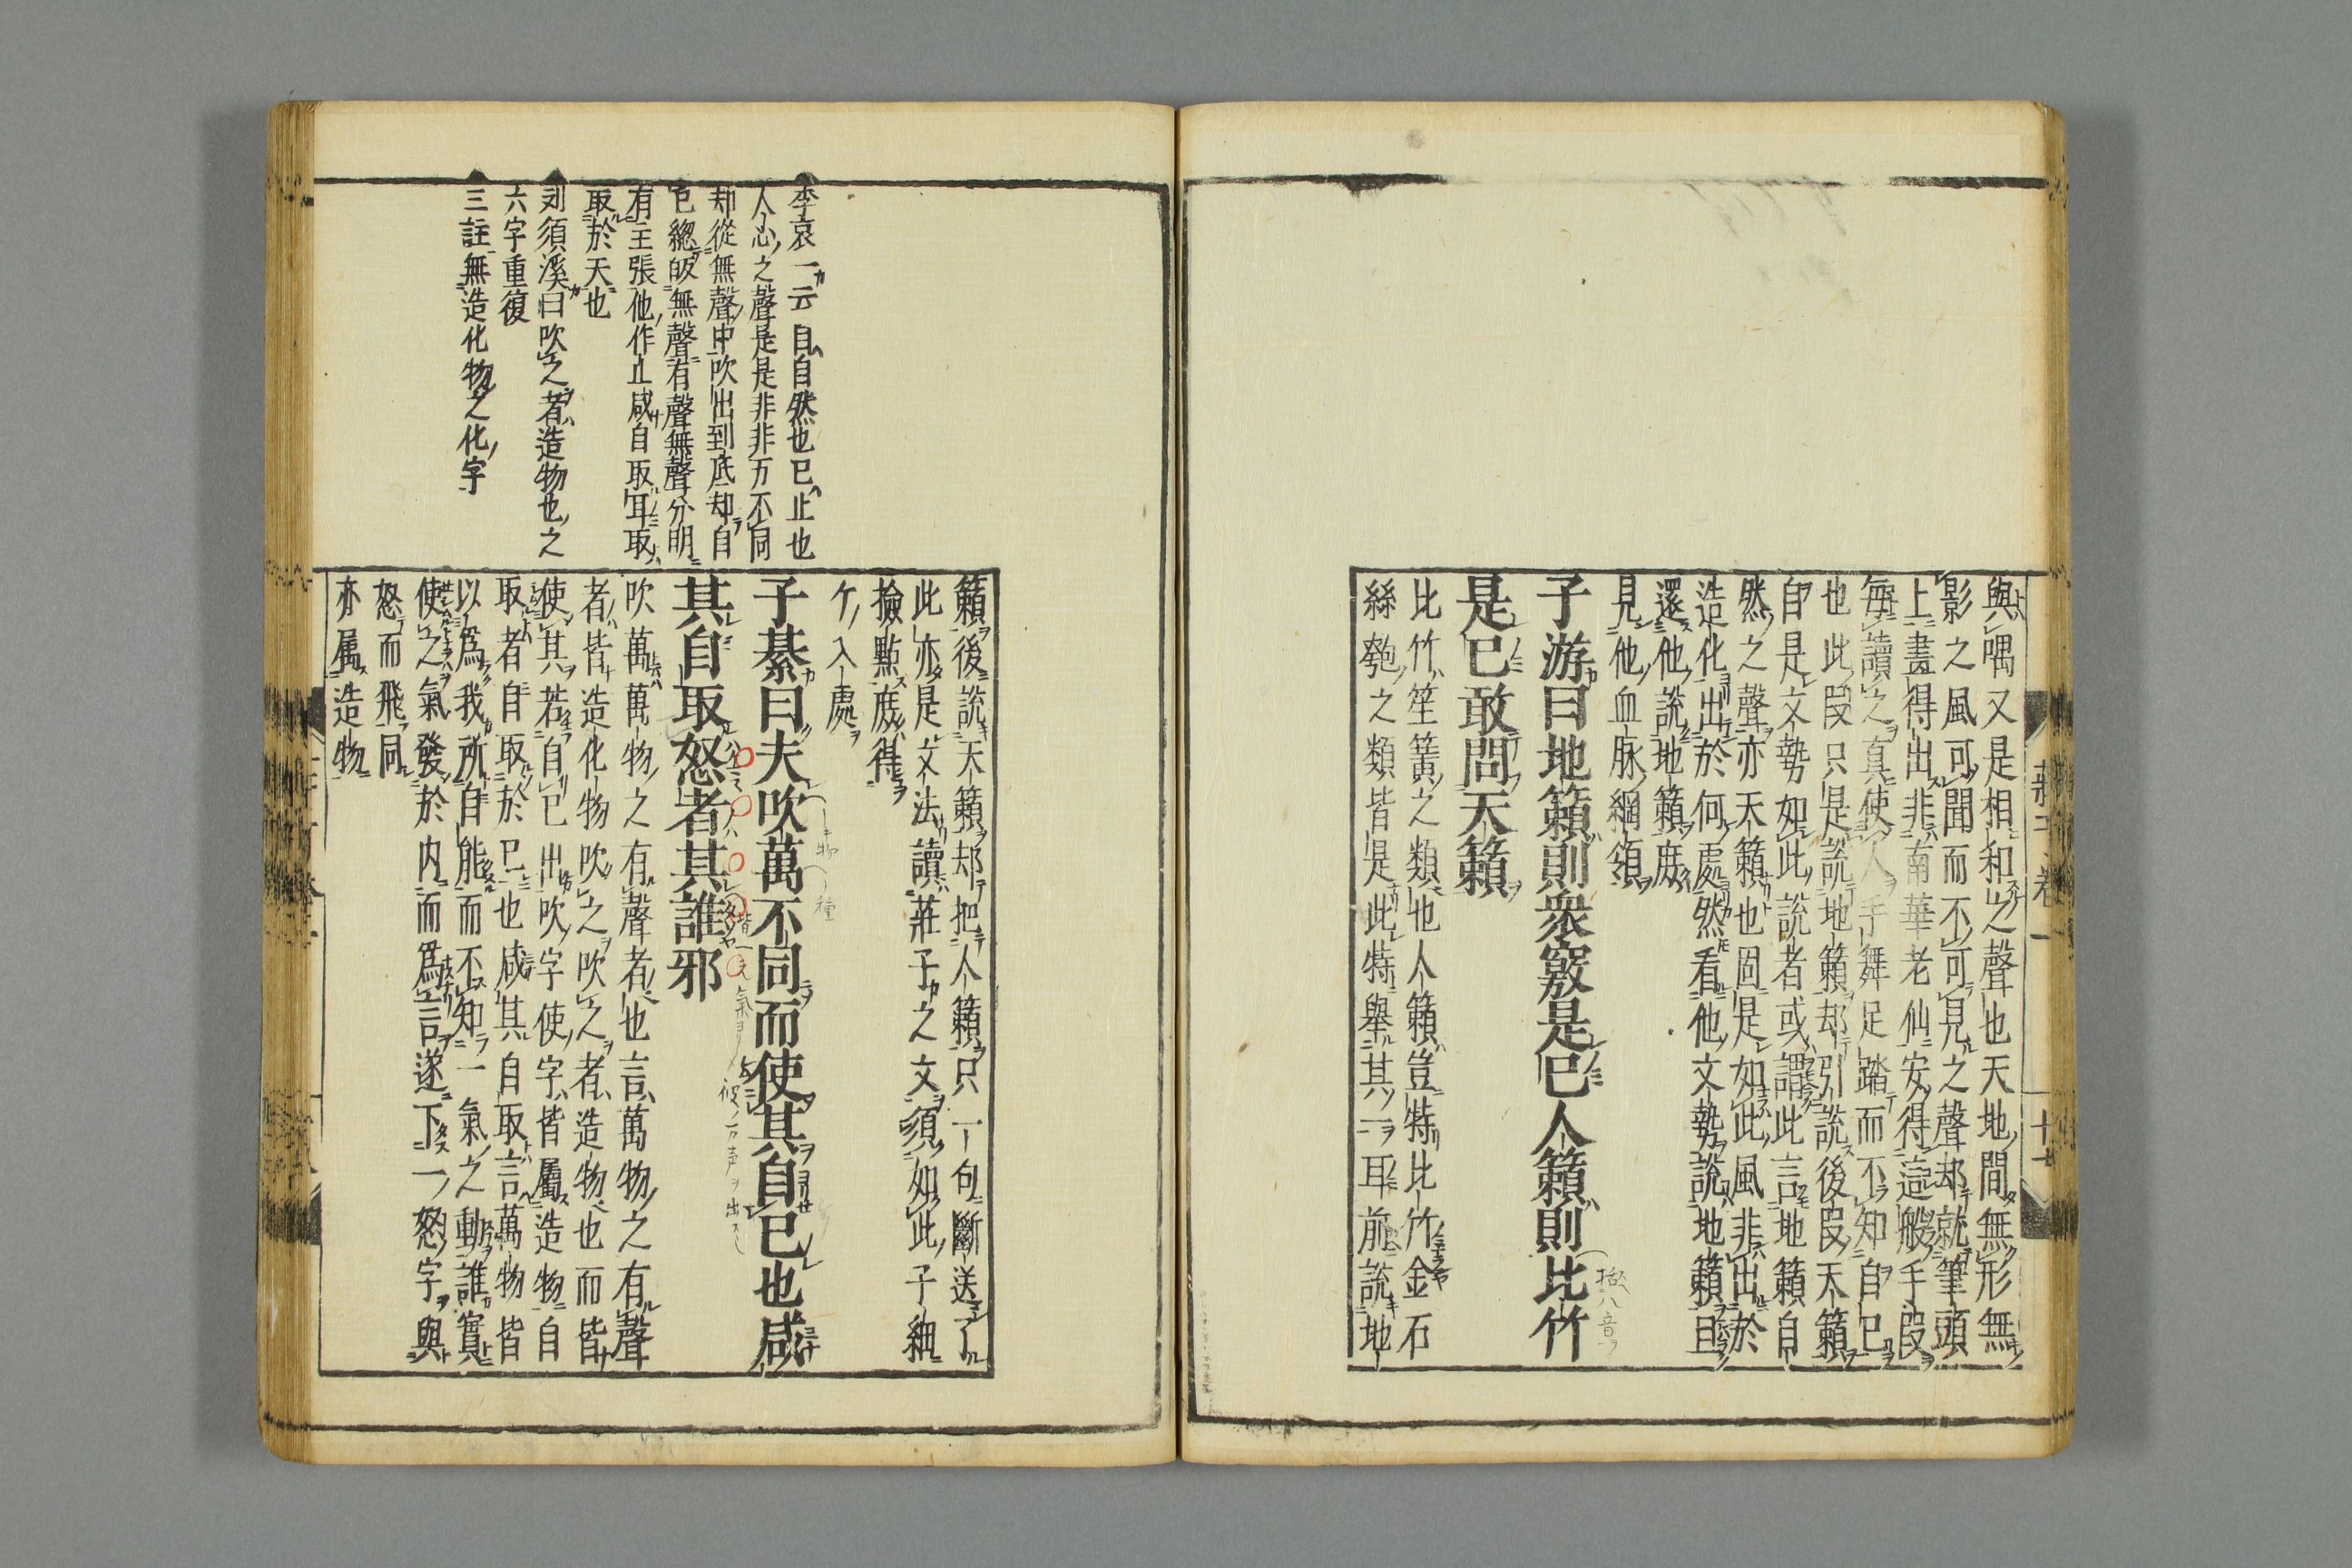 與喁又是相和之聲也天地間無形無
影之風可聞而不可見之聲却就筆頭
上畫得出非南華老仙安得這般手段
每讀之真使人手舞足踏而不知自已
也此段只是說地籟却引說後段天籟
自是文勢如此說者或謂此言地籟自
然之聲亦天籟也固是如此風非出於
造化出於何處然看他文勢說地籟且
還他說地籟庶
見他血脉綱領
子游曰地籟則衆竅是已人籟則比竹
是已敢問天籟
比竹笙簧之類也人籟豈特比竹金石
絲匏之類皆是此特舉其一耳前說地
籟後說天籟却把人籟只一句斷送了
此亦是文法讀莊子之文須如此子細
撿點庶得
个入處
子綦曰夫吹萬不同而使其自已也咸
其自取怒者其誰邪
吹萬萬物之有聲者也言萬物之有聲
者皆造化物吹之吹之者造物也而皆
使其若自已出吹字使字皆屬造物自
取者自取於已也咸其自取言萬物皆
以爲我所自能而不知一氣之動誰實
使之氣發於内而爲言遂下一怒字與
怒而飛同
亦属造物
李衷一云自自然也已止也
人心之聲是是非非万不同
却從無聲中吹出到底却自
皈無聲有聲無聲分明
有主張他作止咸自取耳取
取於天也
刘須溪曰吹之者造物也之
六字重復
三註無造化物之化字
莊子卷一
十七